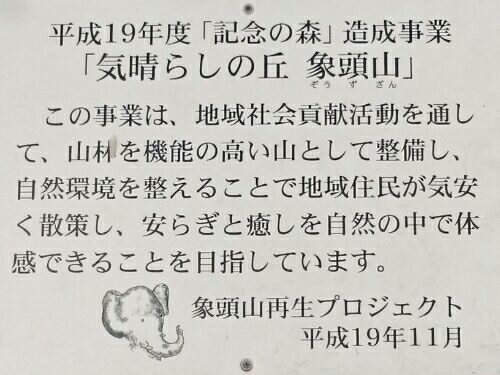 平成19年度「記念の森」造成事業
「気晴らしの丘 象頭山」
ぞう ず ざん
この事業は、地域社会貢献活動を通し
て、山林を機能の高い山として整備し、
自然環境を整えることで地域住民が気安
く散策し、安らぎと癒しを自然の中で体
感できることを目指しています。
象頭山再生プロジェクト
平成19年11月